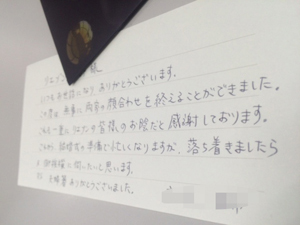 様
いつもお世話になり、ありがとうございます。
この度は、無事に両家の顔合わせを終えることができました。
これも一重に の皆様のお陰だと感謝しております。
これから結婚式の準備で忙しくなりますが、落ち着きましたら
御挨拶に伺いたいと思います。
ありがとうございました。